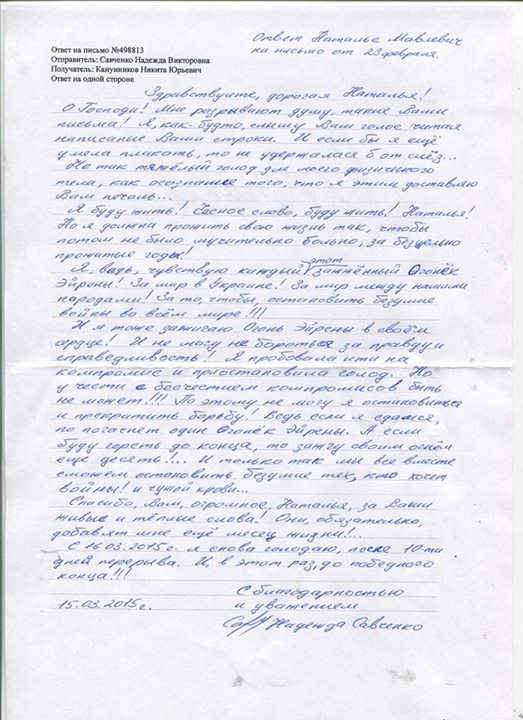 Ответ Наталье Мавлевич
на письмо от 23 февраля.
Ответ на письмо №498813
Отправитель: Савченко Надежда Викторовна
Получатель: Канунников Никита Юрьевич
Ответ на одной стороне
Здравствуйте, дорогая Наталья!
О Господи! Мне разрывают душу, такие Ваши
письма! Я, как-будто, слышу Ваш голос читая
написание Вами строки. И если бы я ещё
умела плакать, то не удержалась б от слёз...
Не так тяжёлый голод для моего физического
тела, как осознание того, что я этим доставляю
Вам печаль...
Я буду жить! Чесное слово, буду жить! Наталья!
Но я должна прожить свою жизнь так, чтобы
потом не было мучительно больно, за безцельно
прожитые годы!
Я, ведь, чувствую каждый этот зажжённый Огонёк
Эйрены! За мир в Украине! За мир между нашими
народами! За то, чтобы, остановить безумие
войны во всём мире!!!
И я тоже зажигаю Огонь Эйрены в своём
сердце! И не могу не бороться за правду и
справедливость! Я пробовала ити на
кемпромис и приостановила голод. Но
у чести с бесчестием компромисов быть
не может!!! По этому не могу я остановиться
и прекратить борьбу! Ведь если я сдамся,
по погаснет один Огонёк Эйрены. А если
буду гореть до конца, то зажгу своим огнём
еще десять!... И только так мы все вместе
сможем остановить безумие тех, кто хочет
войны! и чужой крови...
Спасибо, Вам, огромное, Наталья, за Ваши
живые и тёплые слова. Они, обязательно,
добавят мне ещё месяц жизни!..
С 16.03.2015г. я снова голодаю, после 10-ти
дней перерыва. И, в этот раз, до победного
конца!!!
С благодарностью
15.03.2015г. и уважением
Надежда Савченко